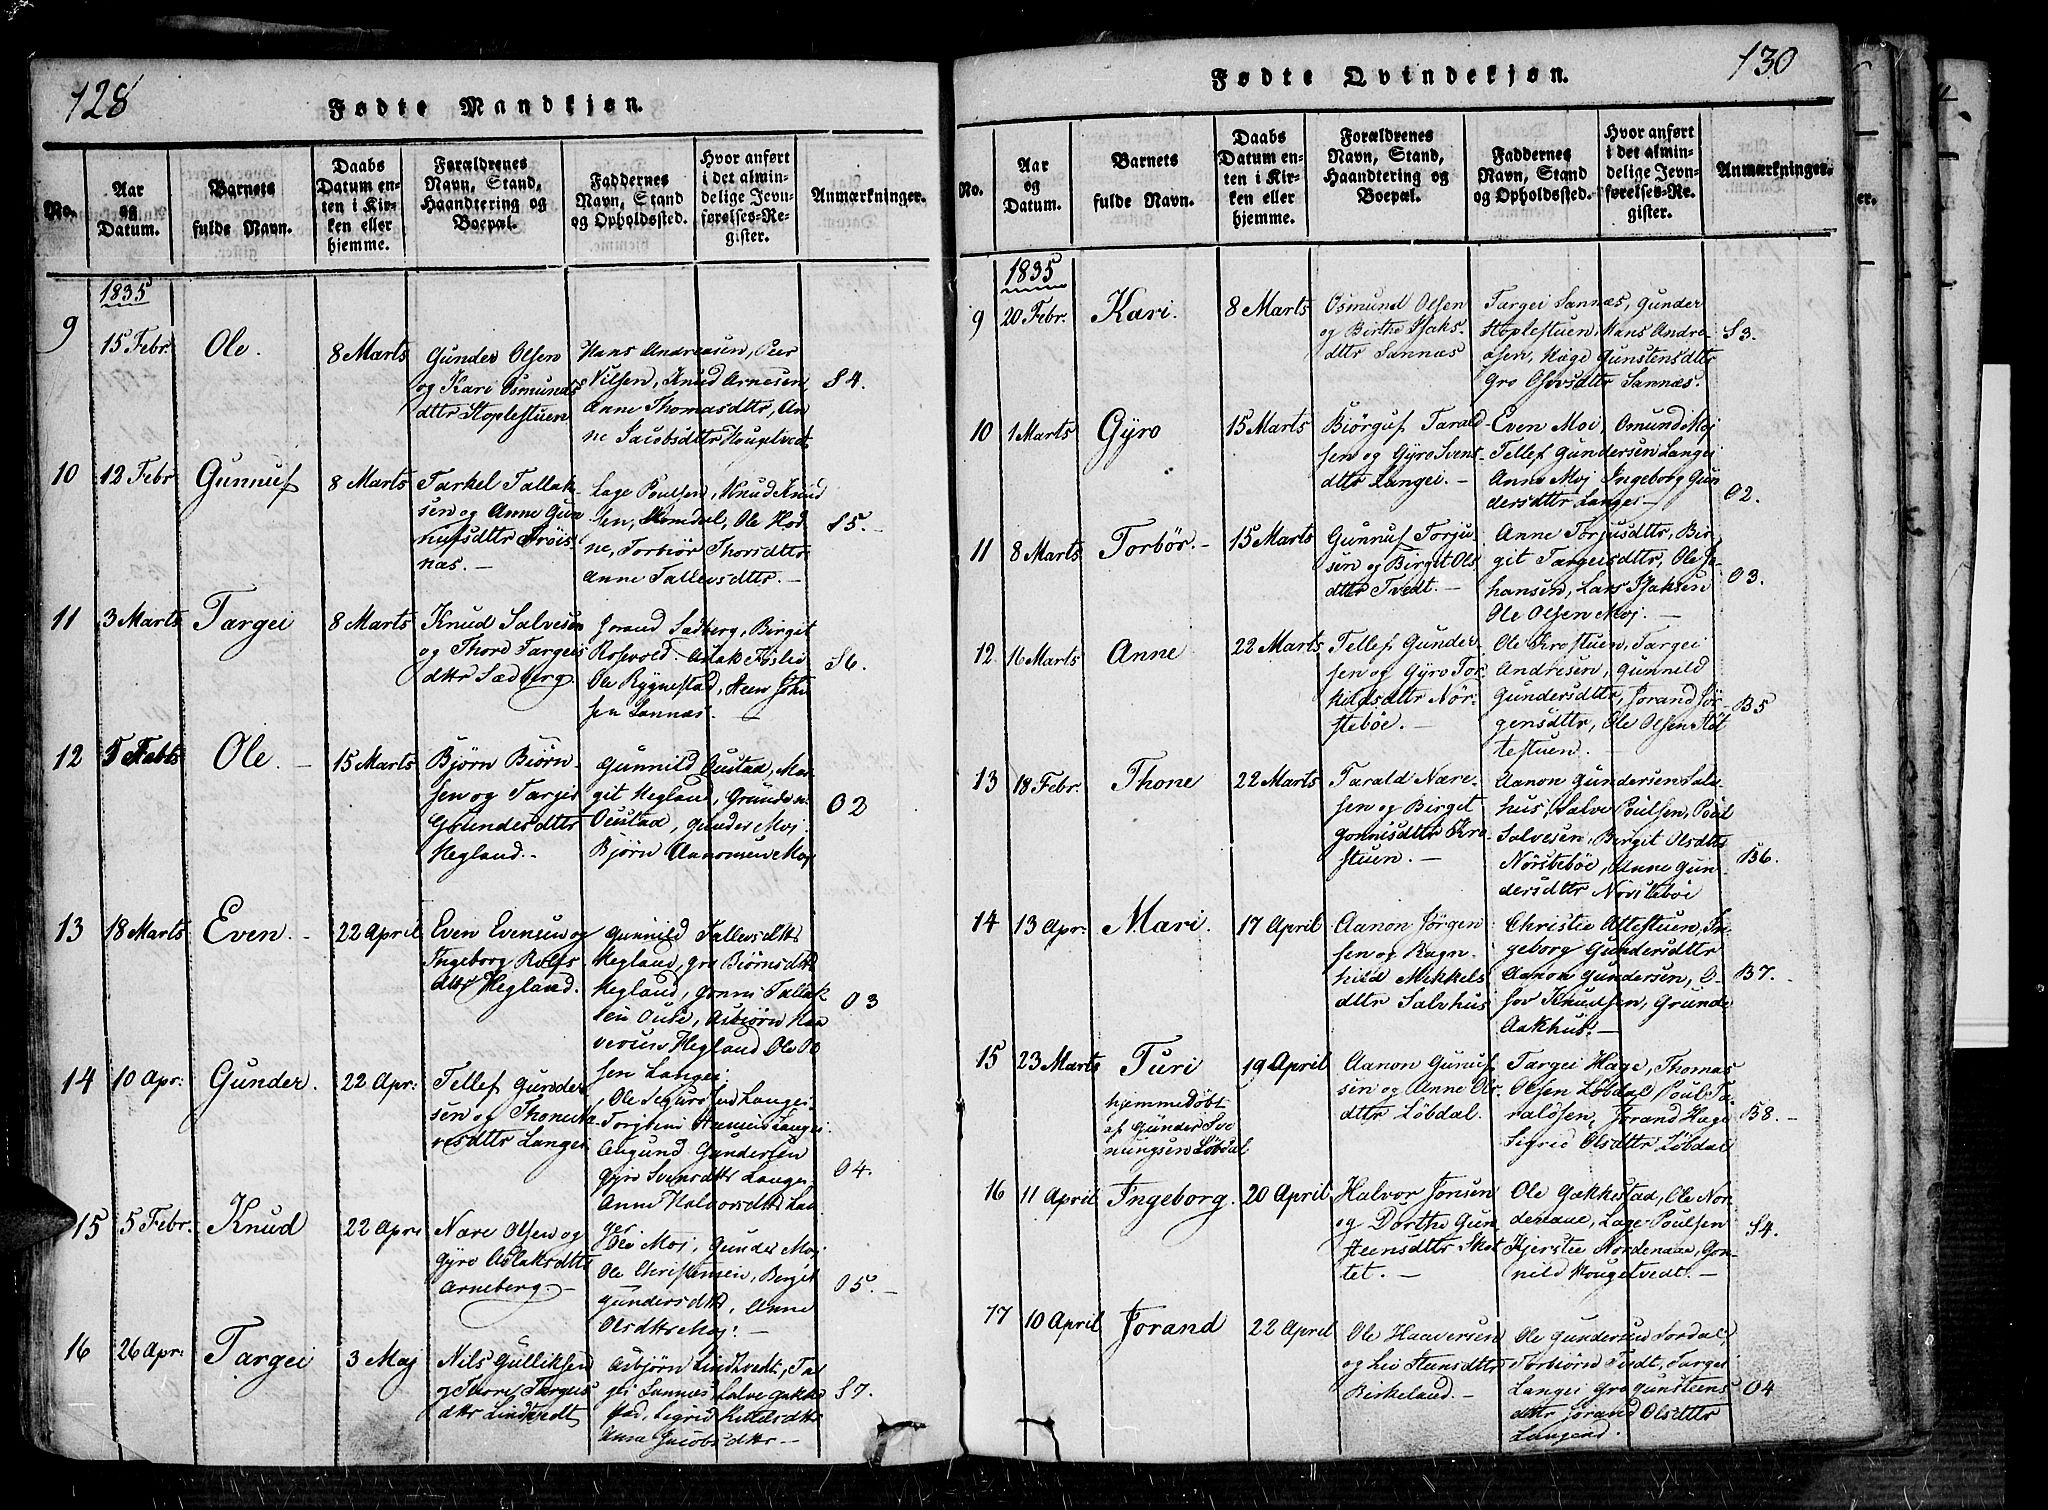 128
Fødte Mandkjøn.
No.
Aar
og
Datum.
Barnets
fulde Navn.
Daabs
Datum en-
ten i Kir-
ken eller
hjemme.
Forældrenes
Navn, Stand,
Haandtering og
Boepæl.
Faddernes
Navn, Stand
og Opholdssted.
Hvor anført
i det almin-
delige Jevn-
førelses-Re-
gister.
Anmærkninger.
1835
9
15 Febr.
Ole.
8 Marts
Gunder Olsen
og Kari Osmunds
dttr Stoplestuen
Hans Andreasen, Peer
Nilsen, Knud Arnesen
Anne Thomasdttr, An
ne Jacobsdttr Hougetvedt
S4.
10
12 Febr
Gunnuf
8 Marts
Tarkel Tallak-
sen og Anne Gun
nufsdttr Frøis-
nas.
Lage Poulsen, Knud Knud
sen, Homdal, Ole Hod
ne, Torbiør Thorsdttr
Anne Tallevsdttr.
S5.
11
3 Marts
Targei
8 Marts
Knud Salvesen
og Thord Targeis
dttr Sædberg
Jorand Sædberg, Birgit
Rosevold. Aslak
Ole Rygnestad,
sen Sannæs.
S6.
12
Ole.
15 Marts
Bjørn Biørn-
sen og Targei
Gundersdttr
Hegland.
Gunnild Oustad, Mar
git Hegland, Gunder
Oustad, Gunder Moj
Bjørn Aanonsen Moj
O2
13
18 Marts
Even.
22 April
Even Evensen og
Ingeborg Rolfs
dttr Hegland.
Gunnild Tallevsdttr
Hegland, Gro Biørnsdttr
Hegland, Gonni Tallak
sen Ouse, Asbiørn Haa
versen Hegland Ole O
sen Langei.
O3
14
10 Apr:
Gunder.
22 Apr:
Tellef Gunder
sen og Thone
dttr Langei
Ole Langei
Torjbin Langei
Augund Gundersen
Gyro Svensdttr Langei
Anne Halvorsdttr Lan
gei.
O4.
15
5 Febr.
Knud
22 Apri
Nare Olsen og
Gyro Aslaksdttr
Arneberg.
Moj, Gunder Moj
Ole Christensen, Bergit
Gundersdttr, Anne
Olsdttr Moj.
O5.
16
26 Apr:
Targei
3 Maj
Nils Gulliksen
og Targeis
dttr Lindtvedt
Asbjørn Lindtvedt, Ta
gei Sannæs Salve Gakke
stad, Sigrid Ketelsdttr
Anna Jacobsdttr
S7.
130
Fødte Qvindekjøn.
No.
Aar
og
Datum.
Barnets
fulde Navn.
Daabs
Datum en-
ten i Kir-
ken eller
hjemme.
Forældrenes
Navn, Stand,
Haandtering og
Boepæl.
Faddernes
Navn, Stand
og Opholdssted.
Hvor anført
i det almin-
delige Jevn-
førelses-Re-
gister.
Anmærkninger.
1835
9
20 Febr.
Kari.
8 Marts
Osmund Olsen
og Birthe Isaks-
dttr Sannæs
Targei Sannæs, Gunder
Stoplestuen, Hans Andre
asen, Hæge Gunstensdttr
Gro Olsdttr Sannæs.
S3.
10
1 Marts
Gyro
15 Marts
Biørguf Tarald
sen og Gyro Svens-
dttr Langei.
Even Moi, Osmund Moj
Tellef Gundersen Langei
Anne Moj Ingeborg Gun
dersdttr Langei
O2.
11
8 Marts
Torbør.
15 Marts
Gunnuf Torju-
sen og Birgit Ols
dttr Tvedt.
Anne Torjusdttr, Bir-
git Targeisdttr, Ole Jo-
hansen, Lars Isaksen
Ole Olsen Moj.
O3.
12
16 Marts
Anne
22 Marts
Tellef Gunder-
sen og Gyro Tor
kildsdttr Nør-
stebøe.
Ole Krostuen, Targei
Andresen, Gunnild
Gundersdttr, Jorand Jør-
gensdttr, Ole Olsen Aat
testuen.
B5
13
18 Febr.
Thone
22 Marts
Tarald Nare-
sen og Birgit
Gonnisdttr Kro
stuen.
Aanon Gundersen Salv
hus, Salve Poulsen, Poul
Salvesen, Birgit Olsdttr
Nørstebøe, Anne Gun
dersdttr Nørstebøe
B6.
14
13 Apr:
Mari.
17 April
Aanon Jørgen
sen og Ragn-
hild Mikkels
dttr Salvhus
Christie Attestuen, In
geborg Gundersdttr
Aanon Gundersen, O-
sov Knudsen, Grunde
Aakhus.
B7.
15
23 Marts
Turi
hjemmedøbt
af Gunder Sve
nungsen Løbdal
19 April
Aanon Gunuf
sen og Anne Ols
dttr Løbdal.
Targei Hage, Thomas
Olsen Løbdal Poul Ta
raldsen, Jorand Hage
Sigrid Olsdttr Løbdal
B8.
16
11 April
Ingeborg.
20 April
Halvor Jonsen
og Dorthe Gun
steensdttr Skot
tet.
Ole Gakkestad, Ole Nor
denaae, Lage Poulsen
Kjerstie Nordenaae, Gon-
nild Hougetvedt.
S4.
17
10 April
Jorand
22 April
Ole Haaversen
og Liv Steensdttr
Birkeland.
Ole Gundersen Sordal,
Torbiørn Tvedt, Targei
Langei Gro Gunsteens
dttr Jorand Olsdttr
Langeid.
O4